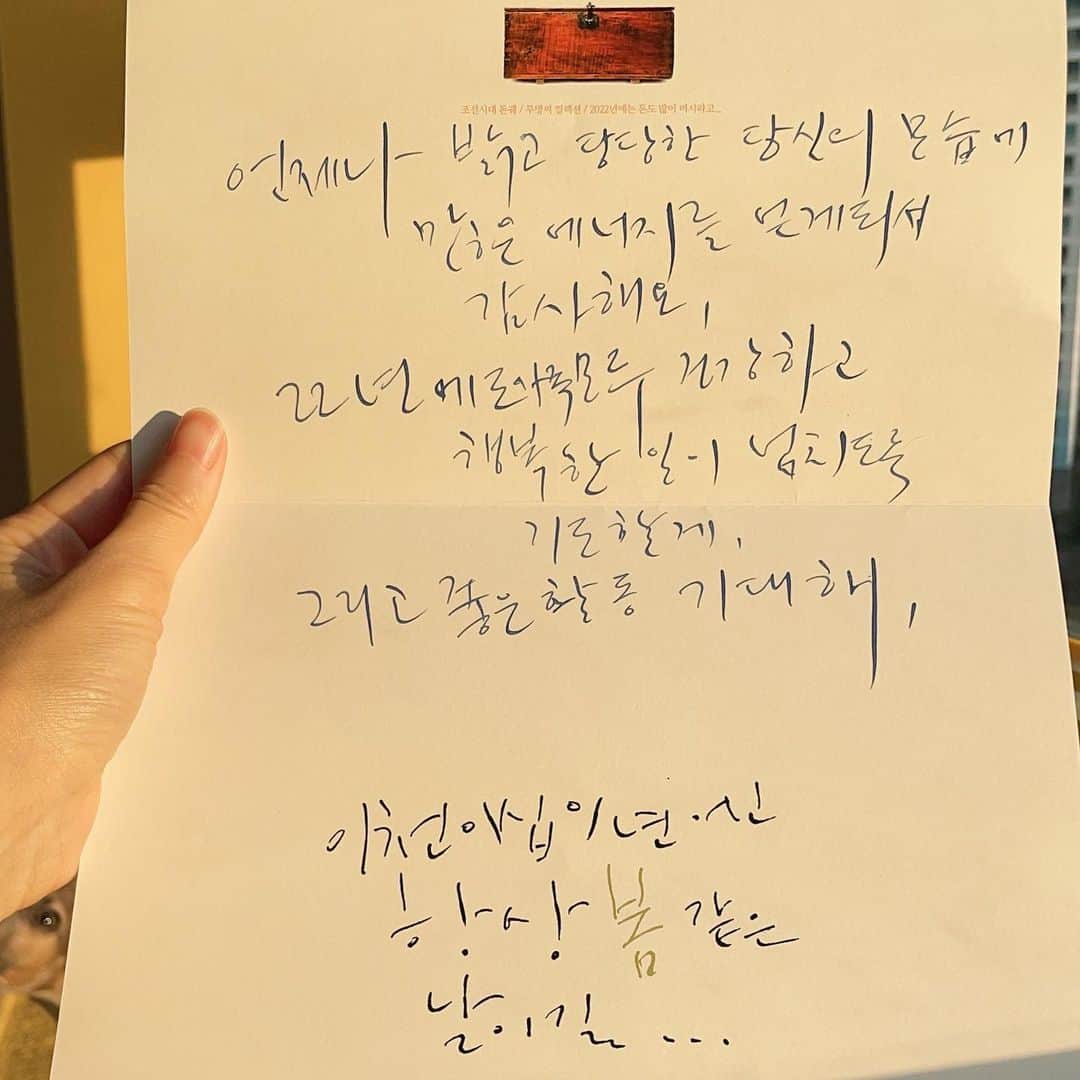 조선시대 돈궤 / 무명씨 컬렉션 / 2022년에는 돈도 많이 버시라고...
언제나 밝고 당당한 당신의 모습에
많은 에너지를 얻게되서
감사해요,
22년에도 가족모두 건강하고
행복한 일이 넘치도록
기도할게,
그리고 좋은활동 기대해,
이천이십이년
항상 봄 같은
날이길...